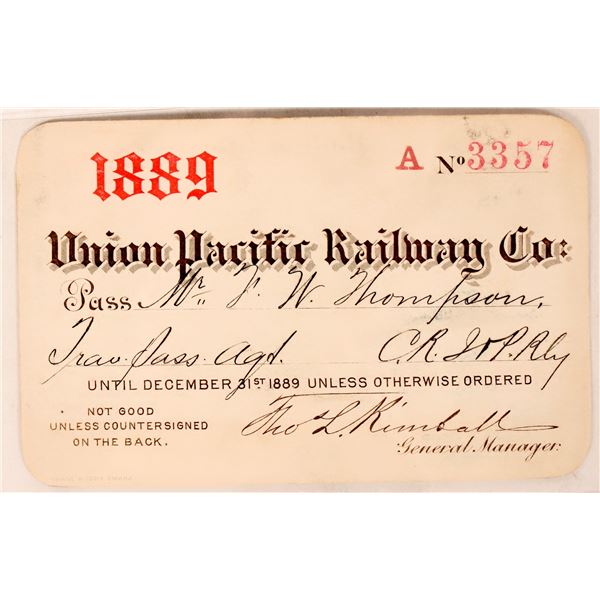 1889
A No 3357
Union Pacific Railway Co:
Pass Mr. F. W. Thompson,
Trav. Pass. Agt. C.R.I & P. Rly
UNTIL DECEMBER 31ST 1889 UNLESS OTHERWISE ORDERED
NOT GOOD
UNLESS COUNTERSIGNED
ON THE BACK.
Tho L. Kimball
General Manager: